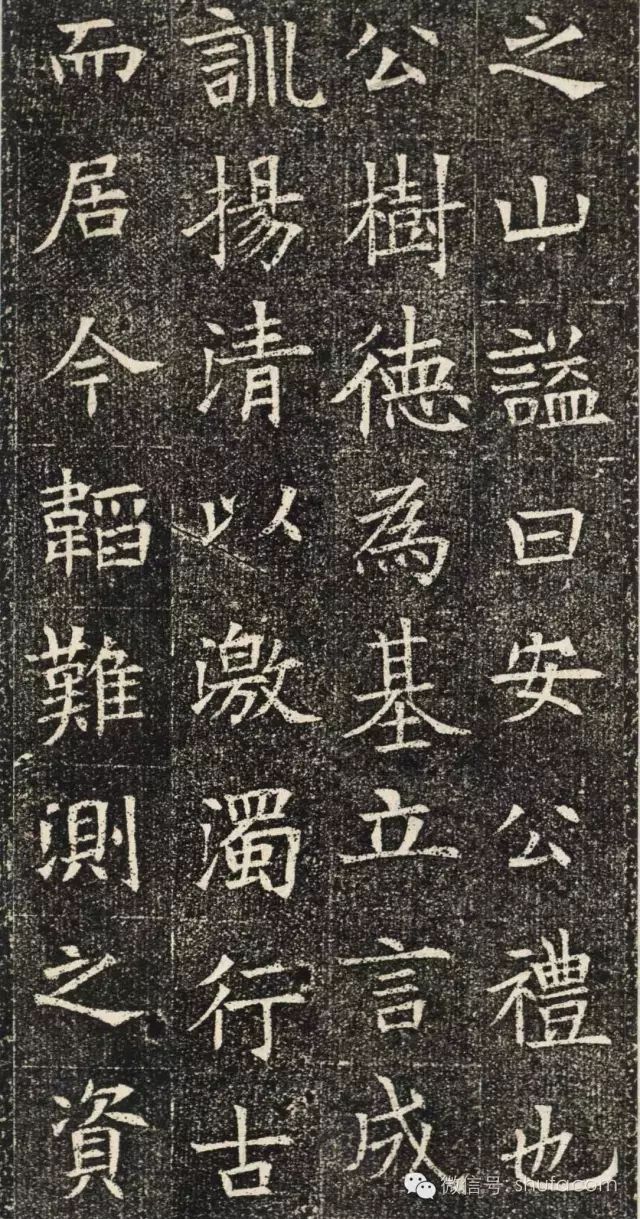 之山謚曰安公禮也
公樹德為基立言成
訓揚清以激濁行古
而居今韜難測之資
微信号: shufacom